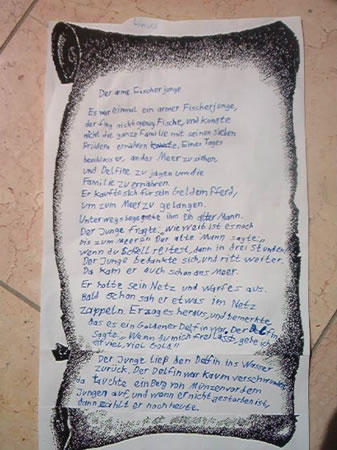 Der arme Fischerjunge
Es war einmal ein armer Fischerjunge,
der fing nicht genug Fische, und konnte
nicht die ganze Familie mit seinen sieben
Brüdern ernähren. Eines Tages
beschloss er, an das Meer zu ziehen
und Delfine zu jagen um die
Familie zu ernähren.
Er kaufte sich für sein Geld ein Pferd,
um zum Meer zu gelangen.
Unterwegs begegnete ihm ein alter Mann.
Der Junge fragte: „Wie weit ist es noch
bis zum Meer?" Der alte Mann sagte:
wenn du schnell reitest, dann in drei Stunden.
Der Junge bedankte sich, und ritt weiter.
Da kam er auch schon ans Meer.
Er holte sein Netz und warf es aus.
Bald schon sah er etwas im Netz
zappeln. Er zog es heraus, und bemerkte
das es ein Goldener Delfin war. Der Delfin
sagte: „Wenn du mich frei lässt, gebe ich
dir viel, viel Gold."
Der Junge ließ den Delfin ins Wasser
zurück. Der Delfin war kaum verschwunden,
da tauchte ein Berg von Münzen vor dem
Jungen auf, und wenn er nicht gestorben ist,
dann zählt er noch heute.